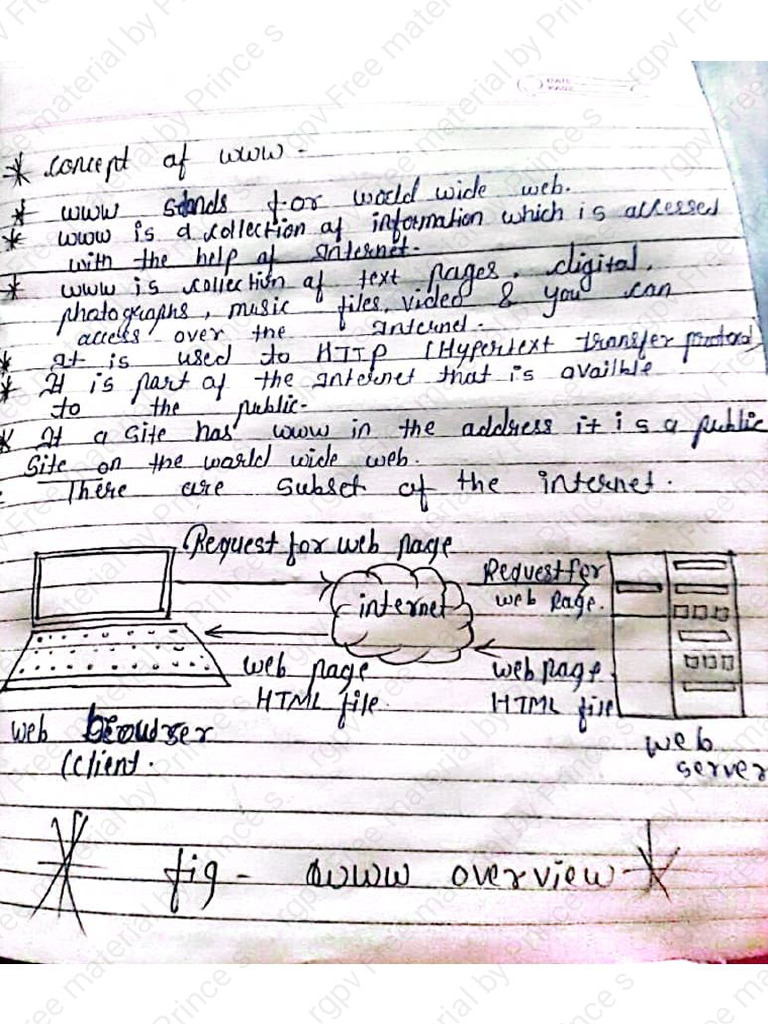 * concept of www -
* www stands for world wide web.
* www is a collection of information which is accessed
with the help of Internet.
* www is collection of text pages, digital,
photographs, music files, video & you can
access over the Internet.
* It is used to HTTP (Hypertext transfer protocol)
* It is part of the Internet that is availble
to the public.
* If a site has www in the address it is a public
site on the world wide web.
There are subset of the internet.
Request for web page
internet
Request for
web Page.
web page
HTML file.
web page
HTML file
web browser
(client.
web
server
fig - www overview
rgpv Free material by Prince s